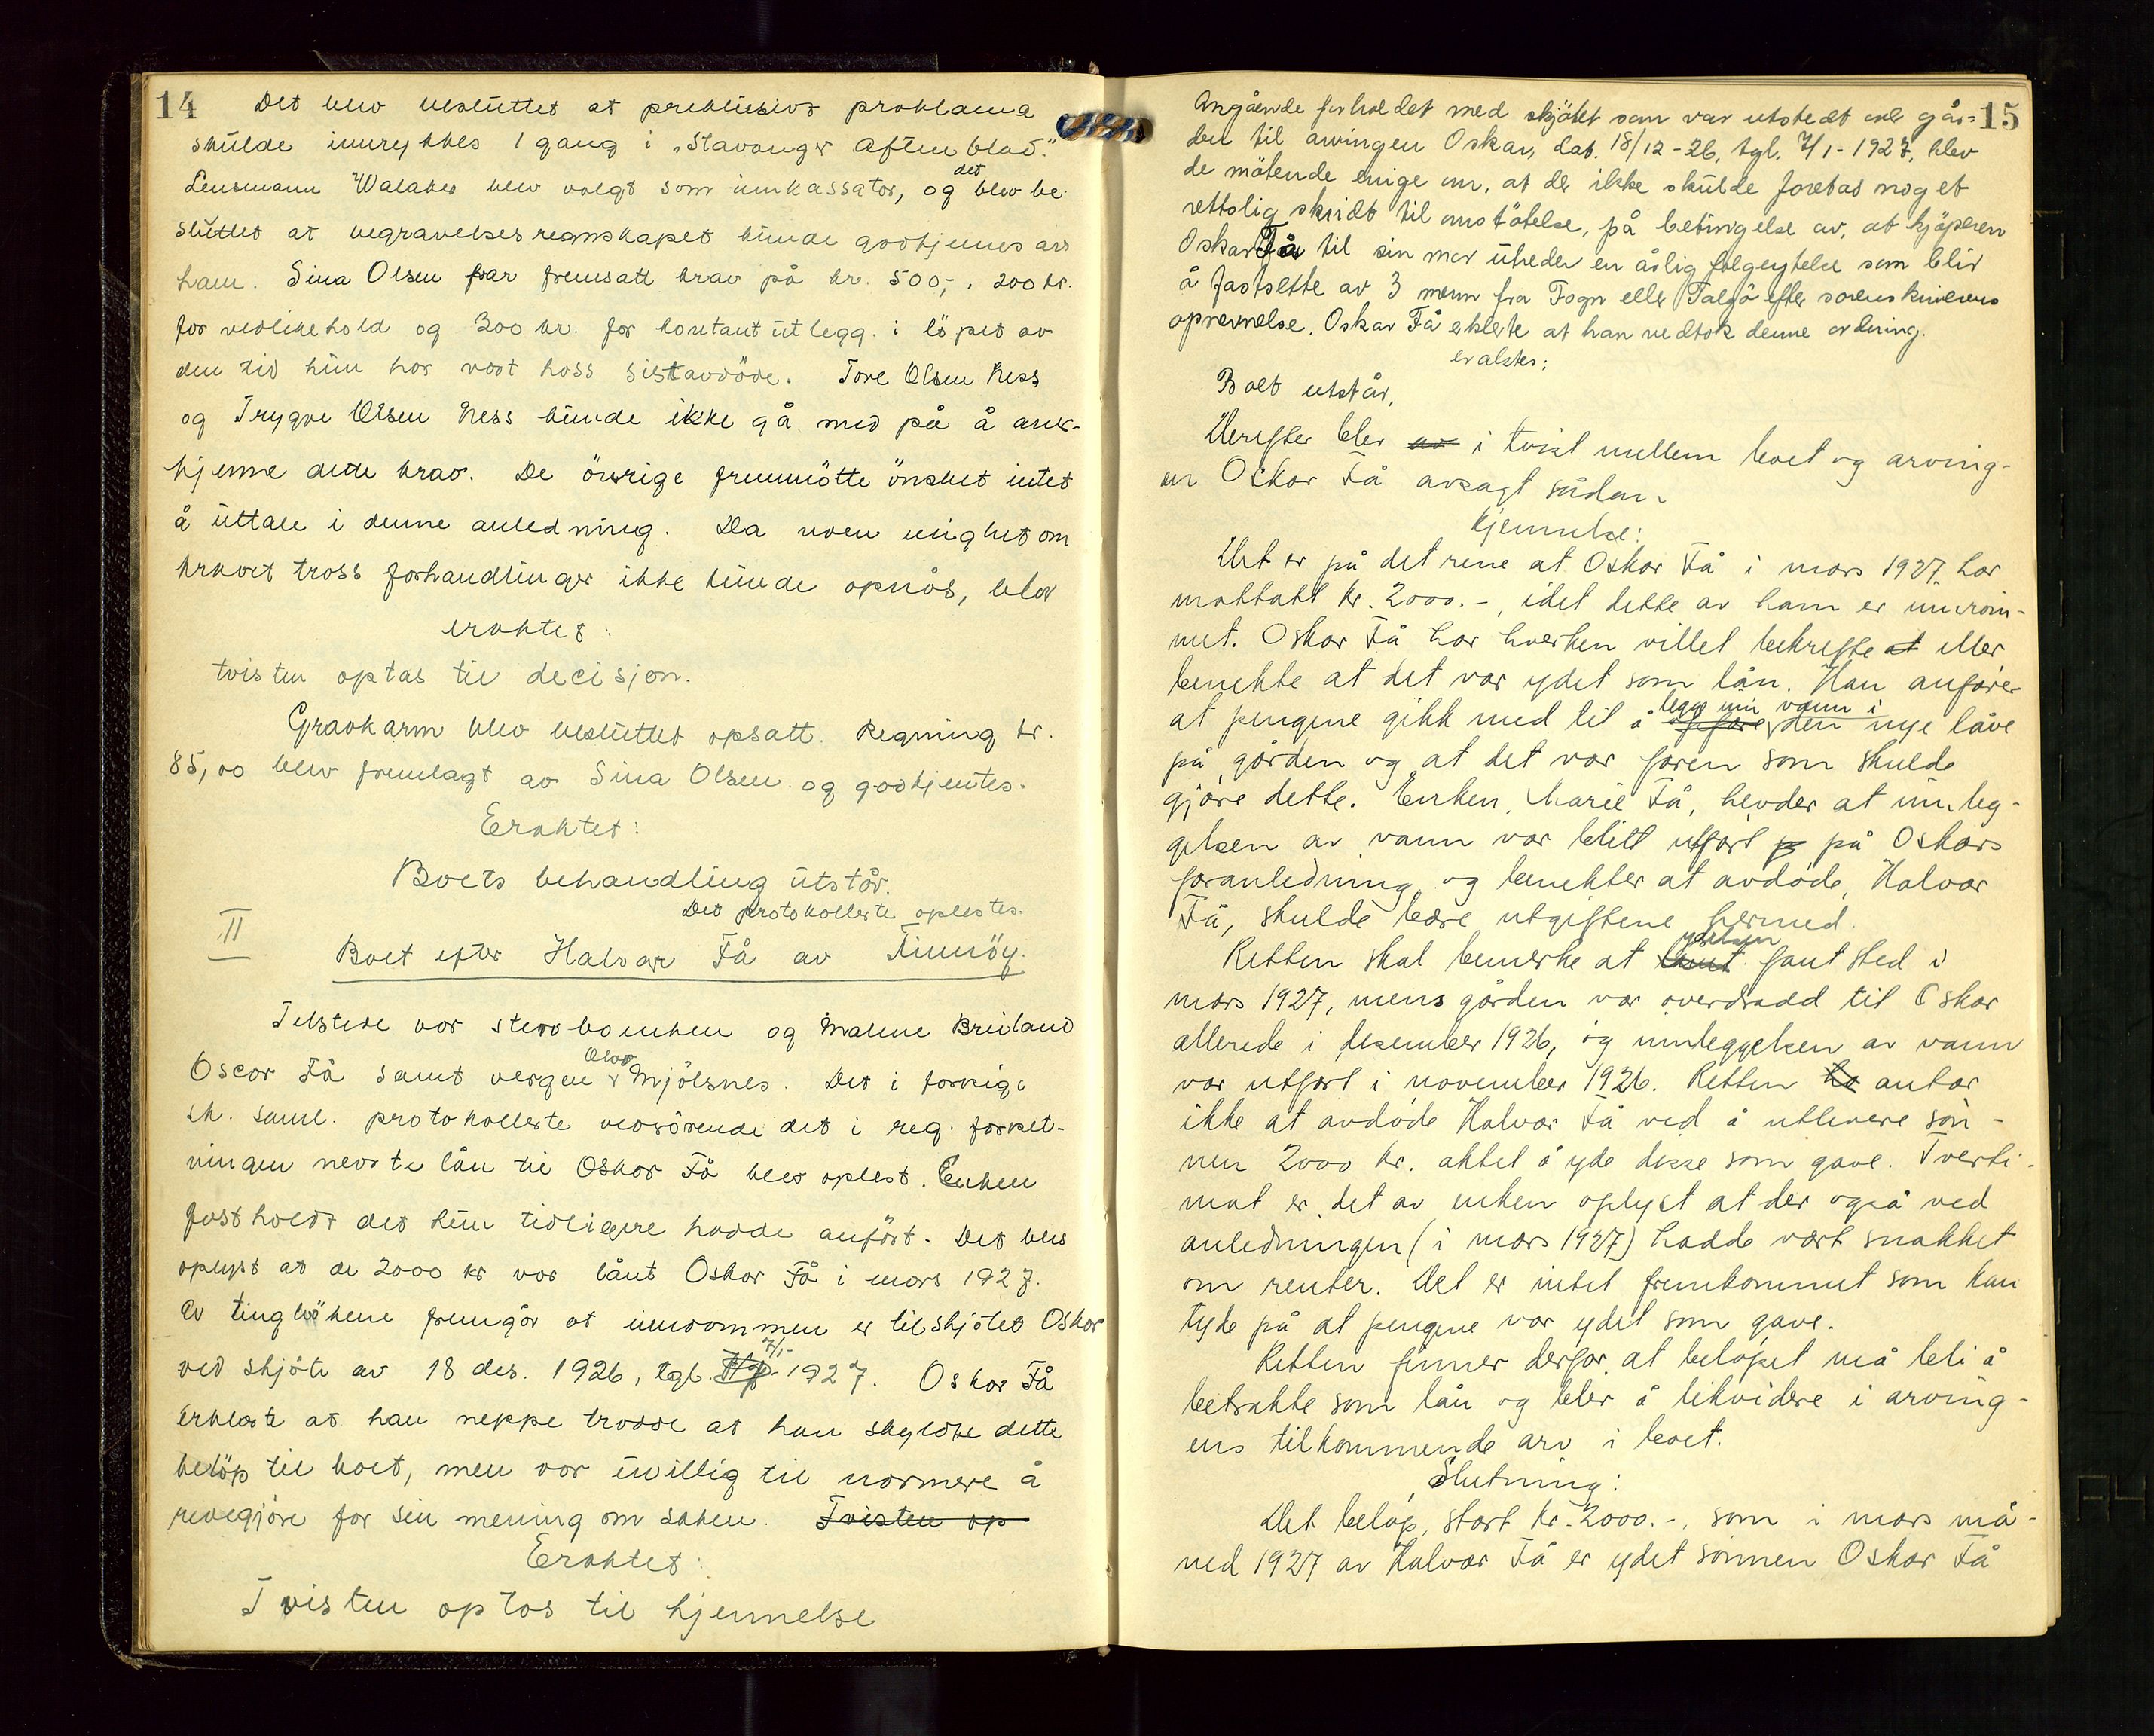 14
Det blev besluttet at preklusivt proklama
skulde innrykkes 1 gang i „Stavanger Aftenblad."
Lensmann Walaker blev valgt som innkassator, og det blev be-
sluttet at begravelsesregnskapet kunde godkjennes av
ham. Sina Olsen har fremsatt krav på kr. 500,-, 200 kr.
for vedlikehold og 300 kr. for kontant utlegg i löpet av
den tid hun har vært hoss sistavdöde. Tore Olsen Ness
og Trygve Olsen Ness kunde ikke gå med på å aner-
kjenne dette krav. De övrige fremmötte önsket intet
å uttale i denne anledning. Da noen enighet om
kravet tross forhandlinger ikke kunde opnås, blev
eraktet:
tvisten optas til decisjon.
Gravkarm blev besluttet opsatt. Regning kr.
85,00 blev fremlagt av Sina Olsen og godkjentes.
Eraktet:
Boets behandling utstår.
Det protokollerte oplestes.
II
Boet efter Halvar Få av Finnöy.
Tilstede var stervboenken og Malene Breiland
Oscar Få samt vergen Olav Mjölsnes. Det i forrige
sk. saml. protokollerte vedrörende det i reg. forret-
ningen nevnte lån til Oskar Få blev oplest. Enken
fastholdt det hun tidligere hadde anfört. Det blev
oplyst at de 2000 kr var lånt Oskar Få i mars 1927.
Av tingbökene fremgår at eiendommen er tilskjötet Oskar
ved skjöte av 18 des. 1926, tgl. 7/1- 1927. Oskar Få
erklærte at han neppe trodde at han skyldte dette
belöp til boet, men var uvillig til nærmere å
redegjöre for sin mening om saken. Tvisten op
Eraktet:
Tvisten optas til kjennelse
15
Angående forholdet med skjötet som var utstedt på går-
den til arvingen Oskar, dat. 18/12-26, tgl. 7/1-1927, blev
de mötende enige om, at der ikke skulde foretas noget
rettslig skridt til omstötelse, på betingelse av, at kjöperen
Oskar Få til sin mor utreder en årlig folgeytelse som blir
å fastsette av 3 menn fra Fogn eller Talgö efter sorenskriverens
opnevnelse. Oskar Få erklærte at han vedtok denne ordning.
eraktes:
Boet utstår.
Derefter blev av i tvist mellem boet og arving-
en Oskar Få avsagt sådan
kjennelse:
Det er på det rene at Oskar Få i mars 1927 har
mottatt kr. 2000.-, idet dette av ham er innröm-
met. Oskar Få har hverken villet bekrefte at eller
benekte at det var ydet som lån. Han anförer
at pengene gikk med til å legge inn vann i den nye låve
på gården og at det var faren som skulde
gjöre dette. Enken, Marie Få, hevder at innleg-
gelsen av vann var blitt utfört p på Oskars
foranledning og benekter at avdöde, Halvar
Få, skulde bære utgiftene hermed.
Retten skal bemerke at ydelsen fant sted i
mars 1927, mens gården var overdradd til Oskar
allerede i desember 1926, og innleggelsen av vann
var utfört i november 1926. Retten ha antar
ikke at avdöde Halvar Få ved å utlevere sön-
nen 2000 kr. aktet å yde disse som gave. Tverti-
mot er det av enken oplyst at der også ved
anledningen (i mars 1927) hadde vært snakket
om renter. Det er intet fremkommet som kan
tyde på at pengene var ydet som gave.
Retten finner derfor at belöpet må bli å
betrakte som lån og blir å likvidere i arving-
ens tilkommende arv i boet.
Slutning:
Det belöp, stort kr. 2000.-, som i mars må-
ned 1927 av Halvar Få er ydet sönnen Oskar Få